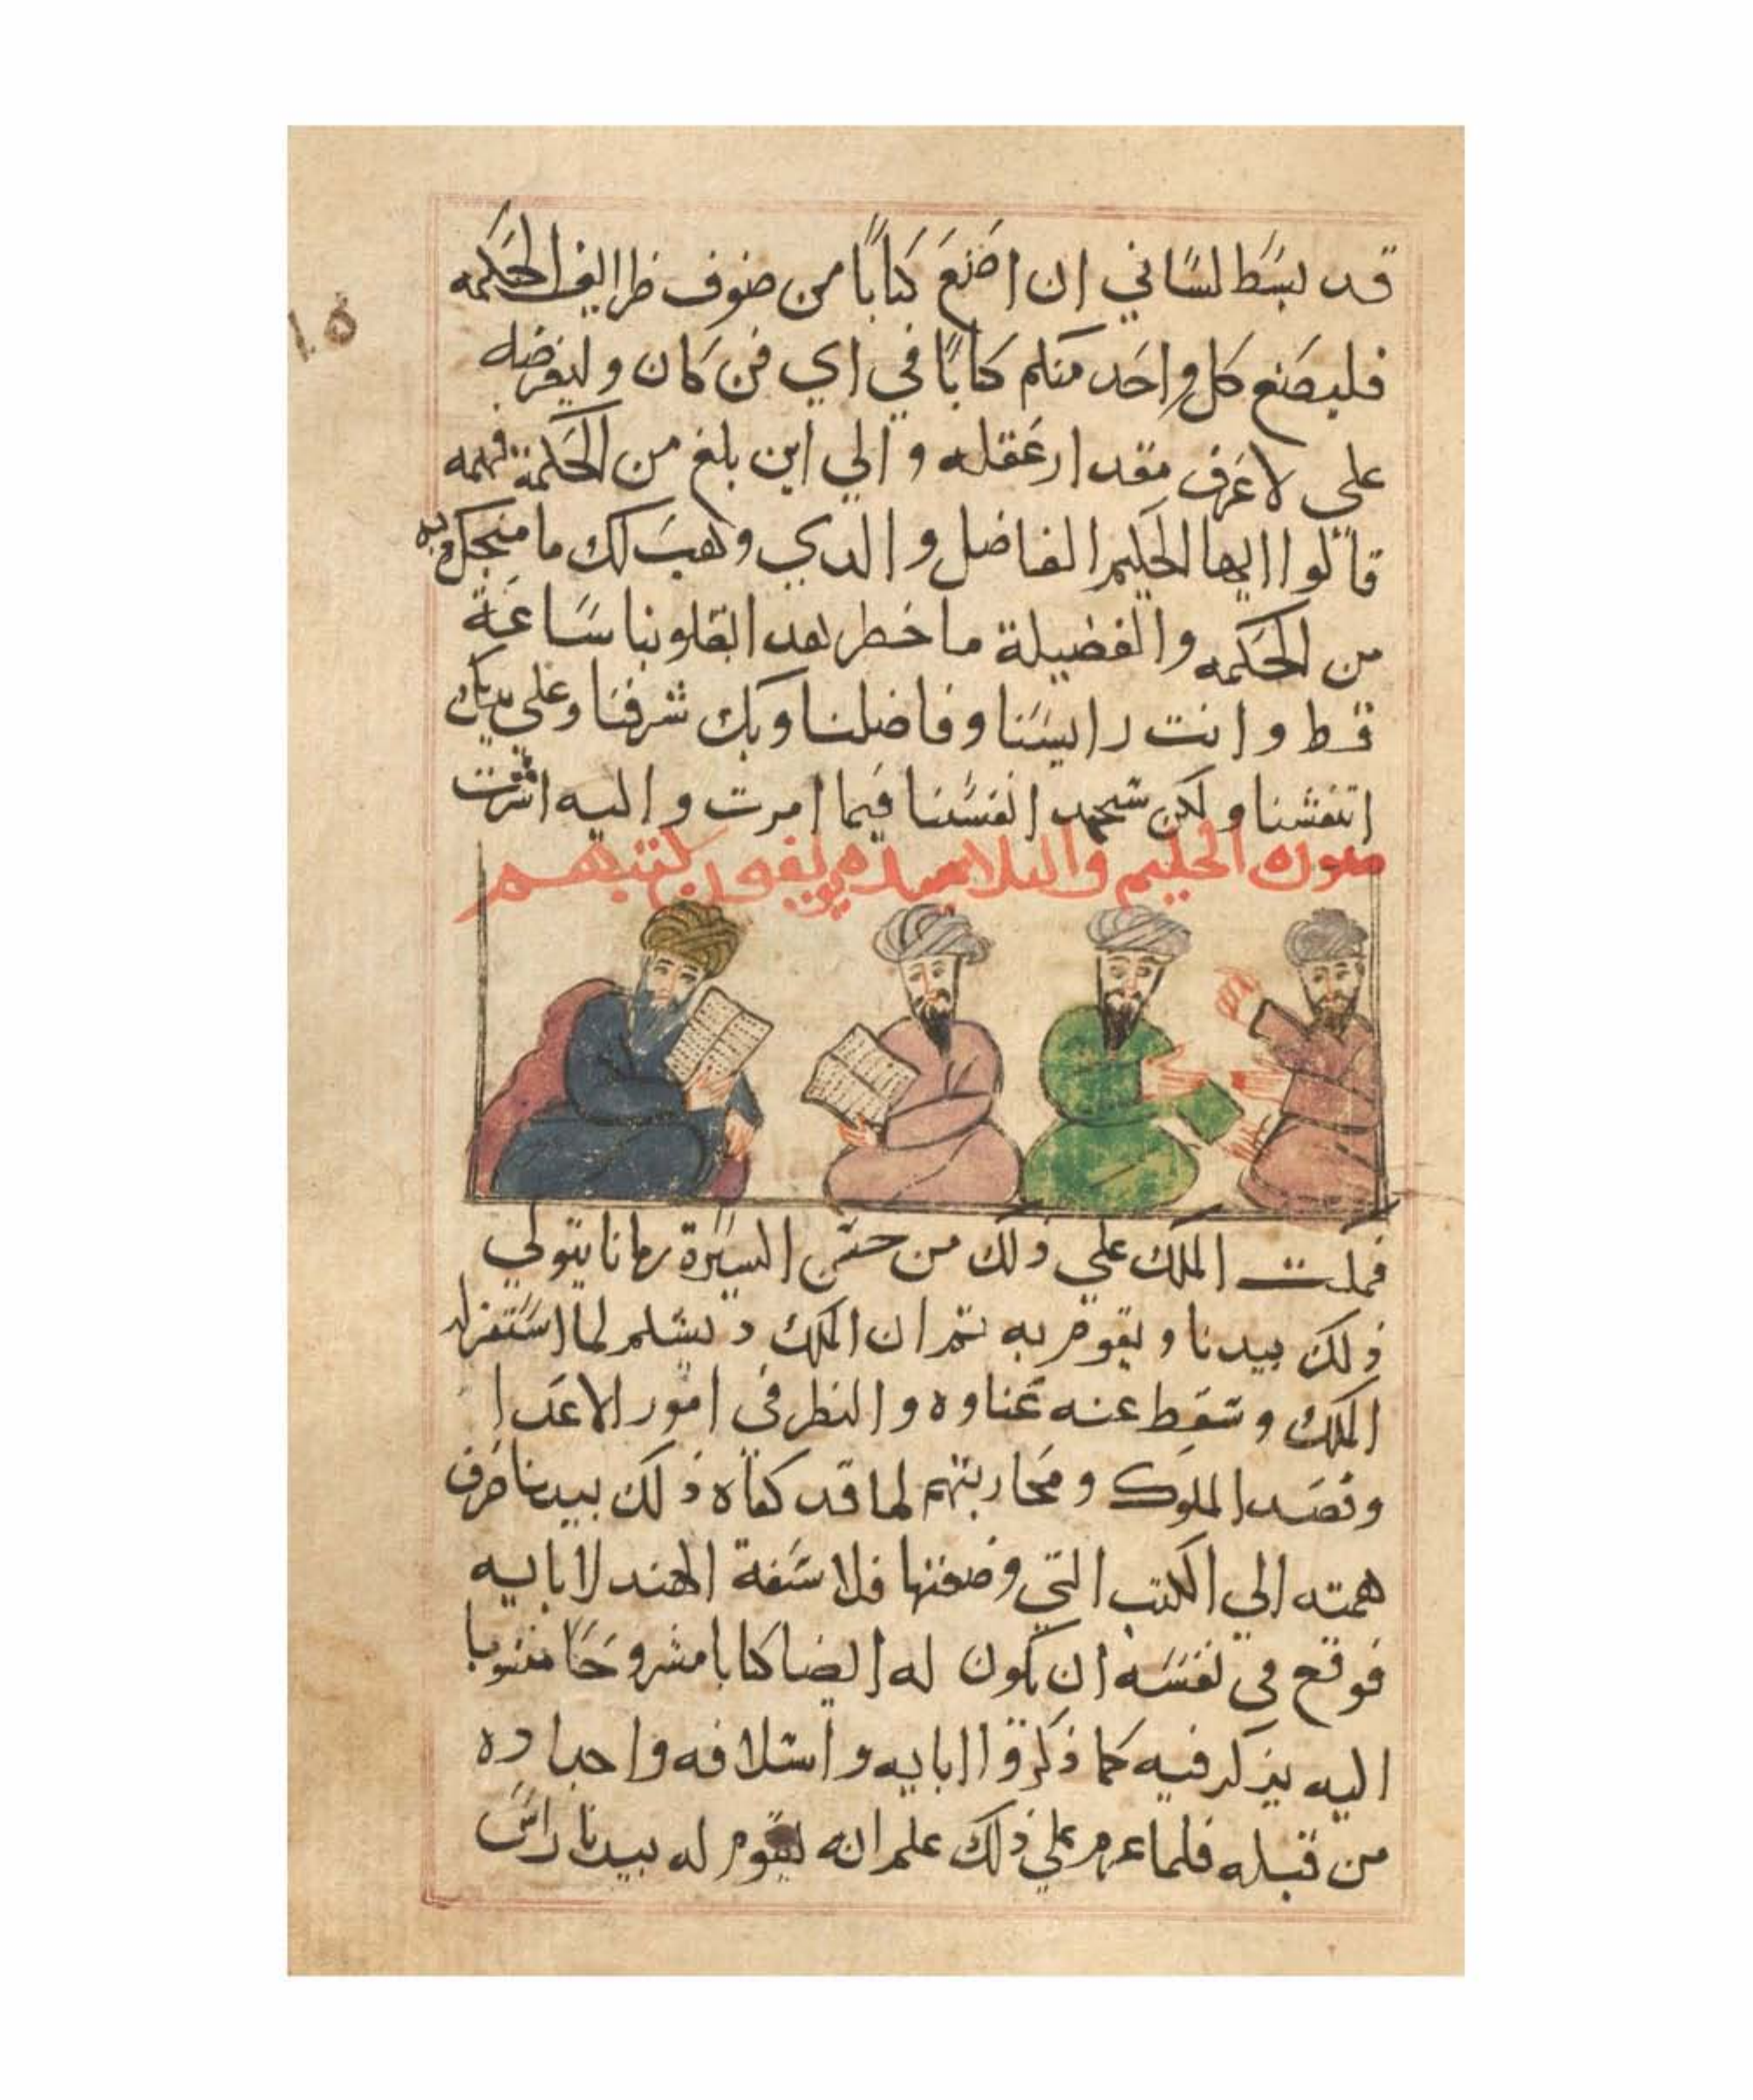 قد بسط لساني ان اصنع كتابا من صنوف ظرايف الحكمه
فليصنع كل واحد منكم كتابا في اي فن كان وليعرضه
علي لاعرف مقدار عقله والي اين بلغ من الحكمة فهمه
قالوا ايها الحكيم الفاضل والدي وهب لك ما منحك به
من الحكمه والفضيلة ما خطر بهدا بقلوبنا ساعة
قط وانت رايسنا وفاضلنا وبك شرفنا وعلي يديك
انفسنا ولكن سنجهد انفسنا فيما امرت واليه اشرت
صورة الحكيم والتلاميده يولفون كتبهم
فمكث الملك علي ذلك من حسن السيرة زمانا يتولي
ذلك بيدبا ويقوم به تم ان الملك لما استقر له
الملك وسقط عنه عناوه والنظر في امور الاعدا
وقصد الملوك ومحاربتهم لما قد كفاه ذلك بيدبا صرف
همته الي الكتب التي وضعتها فلاسفة الهند لابايه
فوقع في نفسه ان يكون له ايضا كتابا مشروحا منسوبا
اليه يذكر فيه كما ذكروا ابايه واسلافه واجداده
من قبله فلما عزم علي ذلك علم انه يقوم له بيدبا راس
١٥